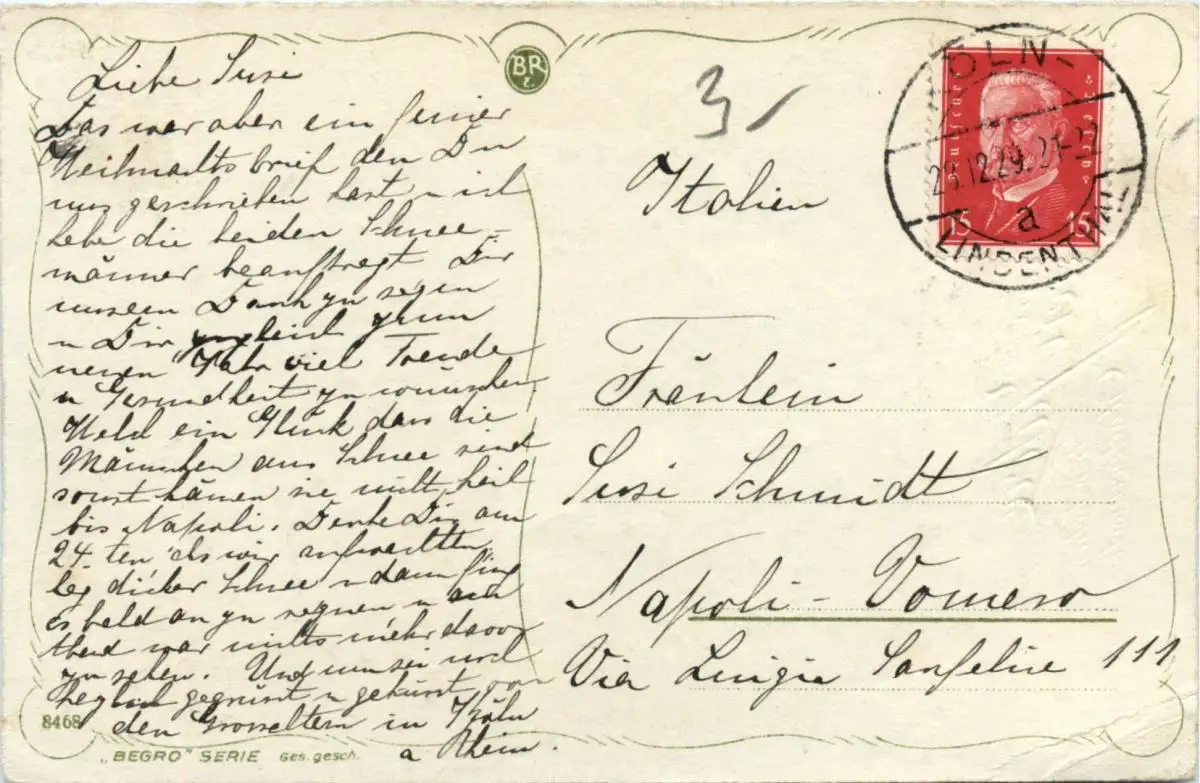 Liebe Susi
Das war aber ein feiner
Weihnachtsbrief den Du
uns geschrieben hast u ich
habe die beiden Schnee-
männer beauftragt Dir
unseren Dank zu sagen
u Dir zugleich zum
neuen Jahr viel Freude
u Gesundheit zu wünschen.
Welch ein Glück dass die
Männchen aus Schnee sind
sonst kämen sie nicht heil
bis Napoli. Denke Dir, am
24-ten als wir aufwachten
lag dicker Schnee u dann fing
es bald an zu regnen u
war nichts mehr davon
zu sehen. Und nun sei und
herzlich gegrüsst u geküsst von
den Grosseltern in Köln
a Rhein.
8468
„BEGRO" SERIE Ges. gesch.
BR
3
Italien
KÖLN-
LINDENTHAL
23.12.29. 21-22
a
Deutsches Reich
15 15
Fräulein
Susi Schmidt
Napoli - Vomero
Via Luigia Sanfelice 111